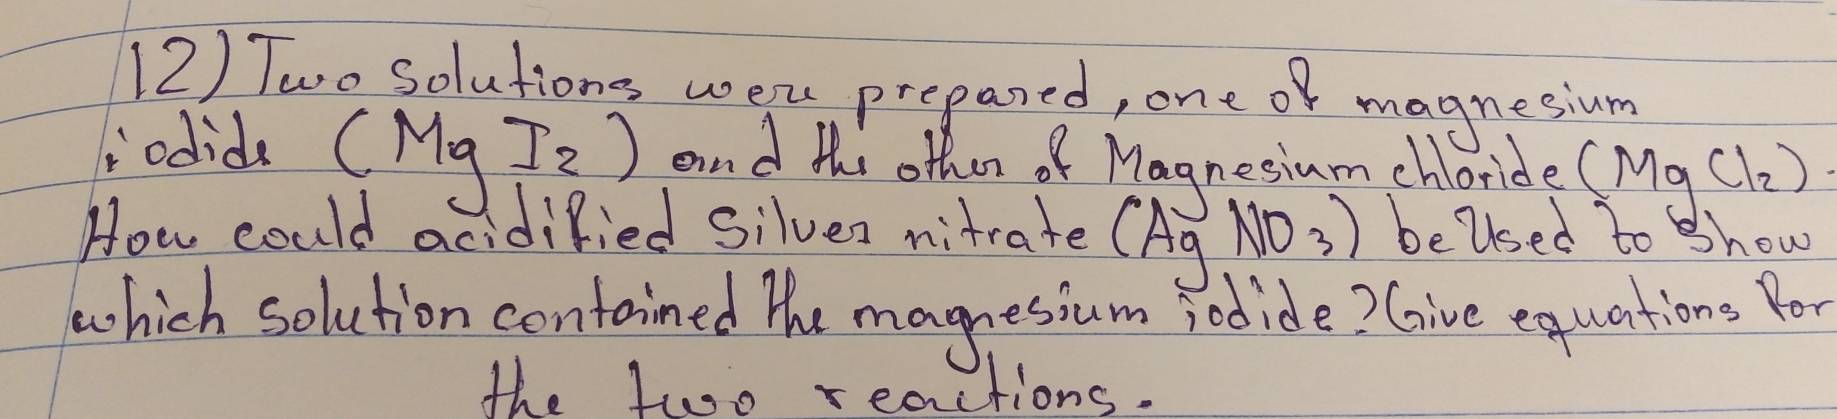 12) Two solutions were prepared, one of magnesium
iodide (Mg I2) and the other of Magnesium chloride (Mg Cl2).
How could acidified silver nitrate (Ag NO3) be used to show
which solution contained the magnesium iodide? Give equations for
the two reactions.